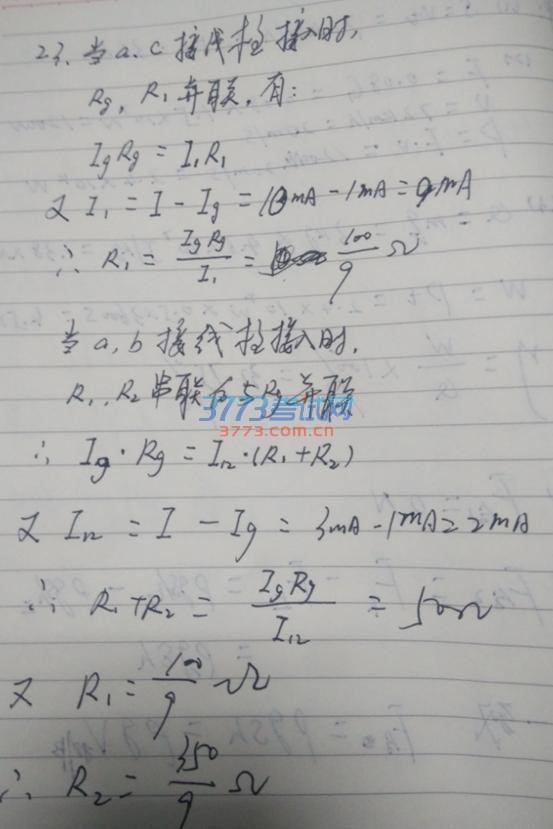 23. 当a.c接线柱接入时,
Rg, R₁并联, 有:
IgRg = I₁R₁
又 I₁ = I - Ig = 10mA - 1mA = 9mA
∴ R₁ = IgRg/I₁ = 100/9 Ω
当a,b接线柱接入时,
R₁, R₂串联后与Rg并联
3773考试网
3773.com.cn
∴ Ig·Rg = I₁₂·(R₁+R₂)
又 I₁₂ = I - Ig = 3mA - 1mA = 2mA
∴ R₁+R₂ = IgRg/I₁₂ = 50Ω
又 R₁ = 100/9 Ω
∴ R₂ = 350/9 Ω